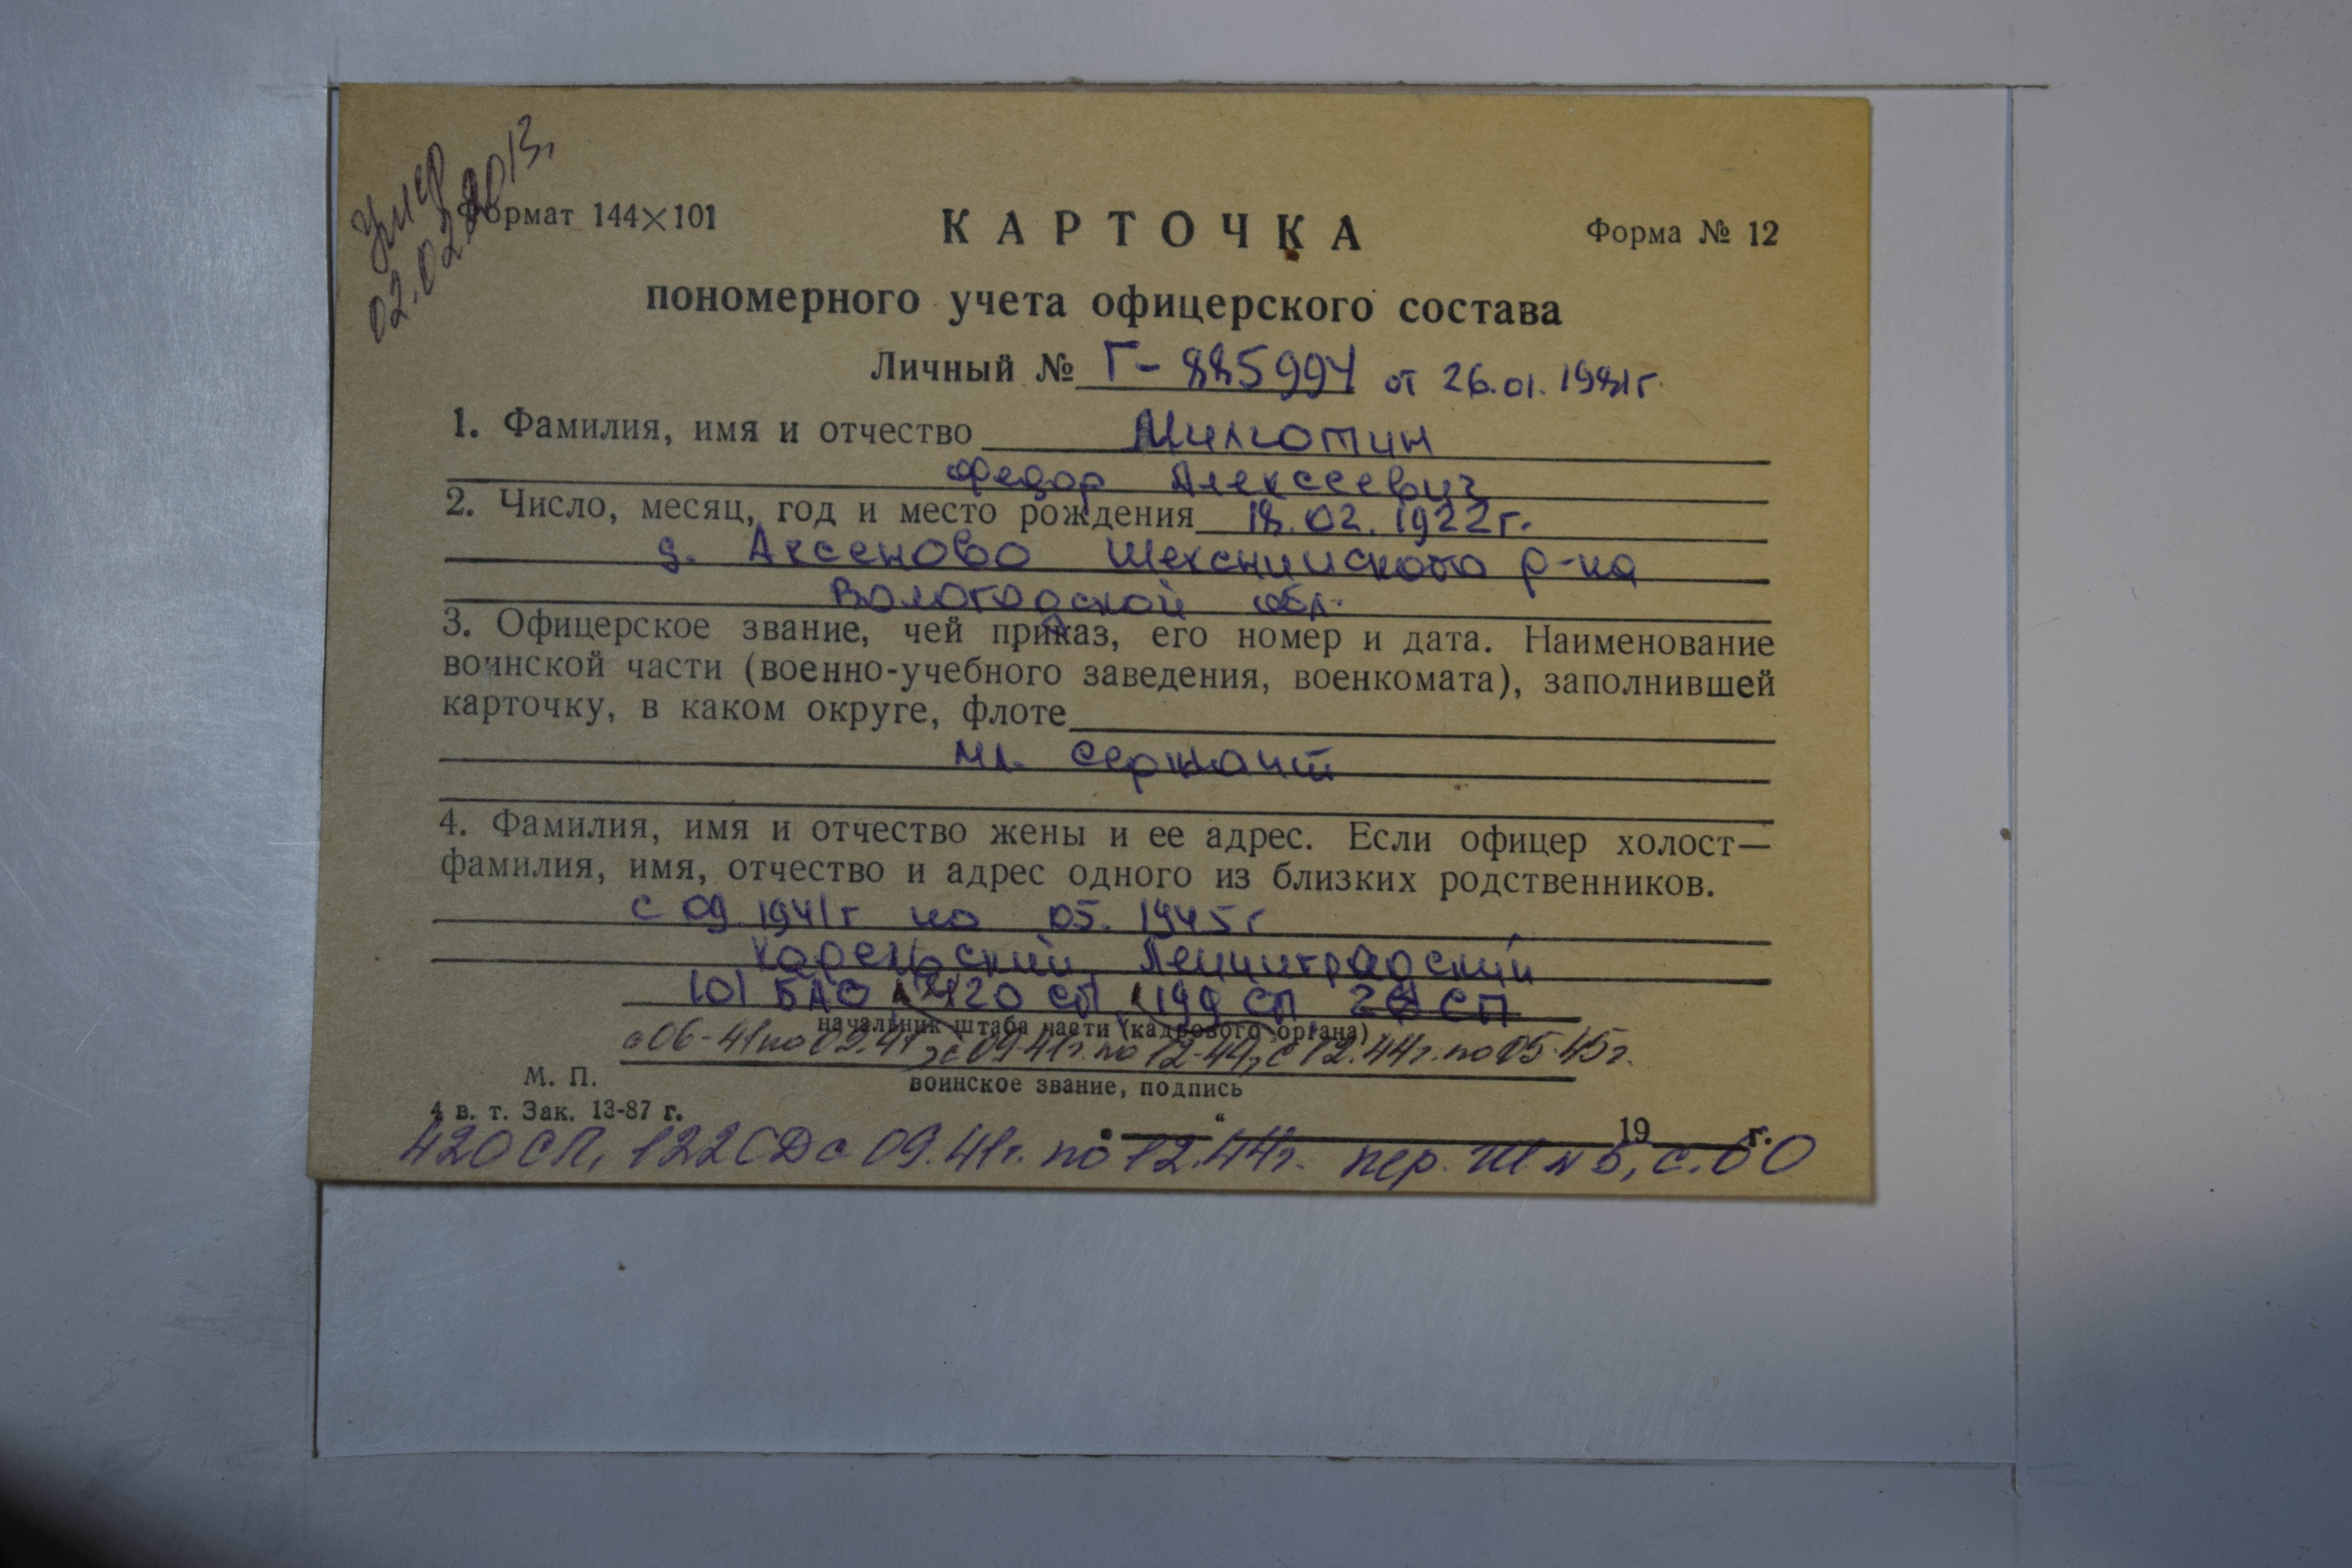 Умер
02.02.2013г
Формат 144×101
КАРТОЧКА
Форма № 12
пономерного учета офицерского состава
Личный № Г-885994 от 26.01.1981г.
1. Фамилия, имя и отчество Милютин
Федор Алексеевич
2. Число, месяц, год и место рождения 18.02.1922г.
д. Аксеново Шекснинского р-на
Вологодской обл.
3. Офицерское звание, чей приказ, его номер и дата. Наименование
воинской части (военно-учебного заведения, военкомата), заполнившей
карточку, в каком округе, флоте
мл. сержант
4. Фамилия, имя и отчество жены и ее адрес. Если офицер холост—
фамилия, имя, отчество и адрес одного из близких родственников.
с 09.1941г по 05.1945г
Карельский, Ленинградский
101 БАО, 420 СП, 199 СП СП
начальник штаба части (кадрового органа)
с 06-41 по 09.41, с 09.41г. по 12-44, с 12.44г. по 05.45г.
воинское звание, подпись
М. П.
4 в. т. Зак. 13-87 г.
" 19 г.
420 СП, 122 СД с 09.41г. по 12.44г. пер. с.